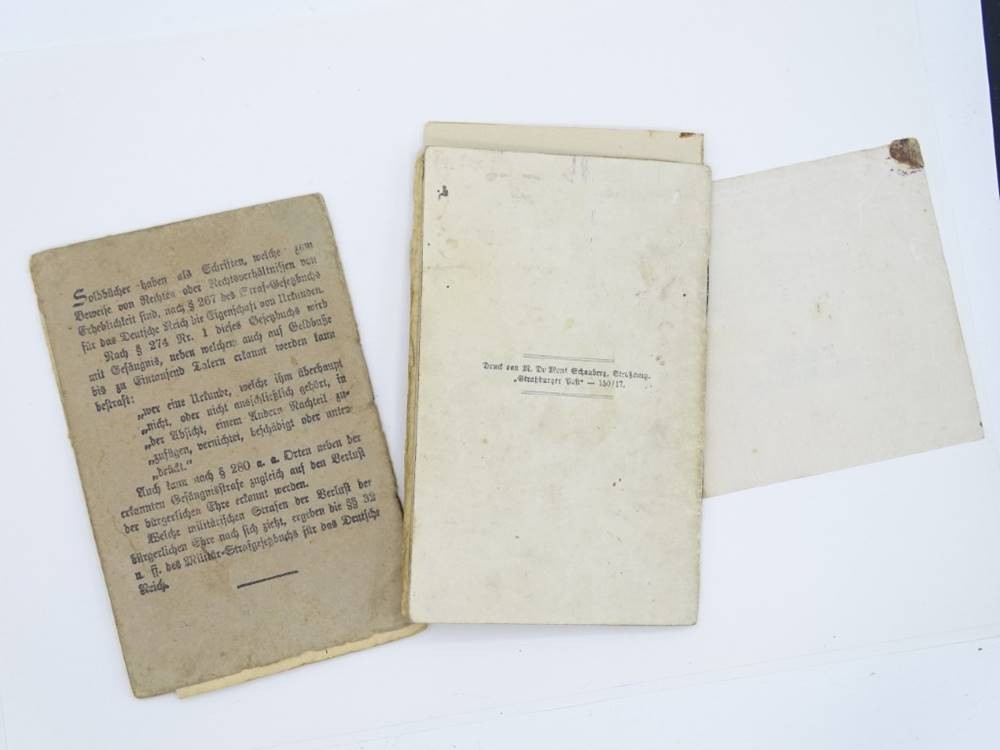 Soldbücher haben als Schriften, welche zum
Beweise von Rechten oder Rechtsverhältnissen von
Erheblichkeit sind, nach § 267 des Straf-Gesetzbuchs
für das Deutsche Reich die Eigenschaft von Urkunden.
Nach § 274 Nr. 1 dieses Gesetzbuchs wird
mit Gefängnis, neben welchem auch auf Geldbuße
bis zu Eintausend Talern erkannt werden kann
bestraft:
„wer eine Urkunde, welche ihm überhaupt
„nicht, oder nicht ausschließlich gehört, in
„der Absicht, einem Andern Nachteil zu-
„zufügen, vernichtet, beschädigt oder unter-
„drückt.“
Auch kann nach § 280 a. a. Orten neben der
erkannten Gefängnisstrafe zugleich auf den Verlust
der bürgerlichen Ehre erkannt werden.
Welche militärischen Strafen der Verlust der
bürgerlichen Ehre nach sich zieht, ergeben die §§ 32
u. ff. des Militär-Strafgesetzbuchs für das Deutsche
Reich.
Druck von M. Du Mont Schauberg, Straßburg.
„Straßburger Post“ — 150/17.